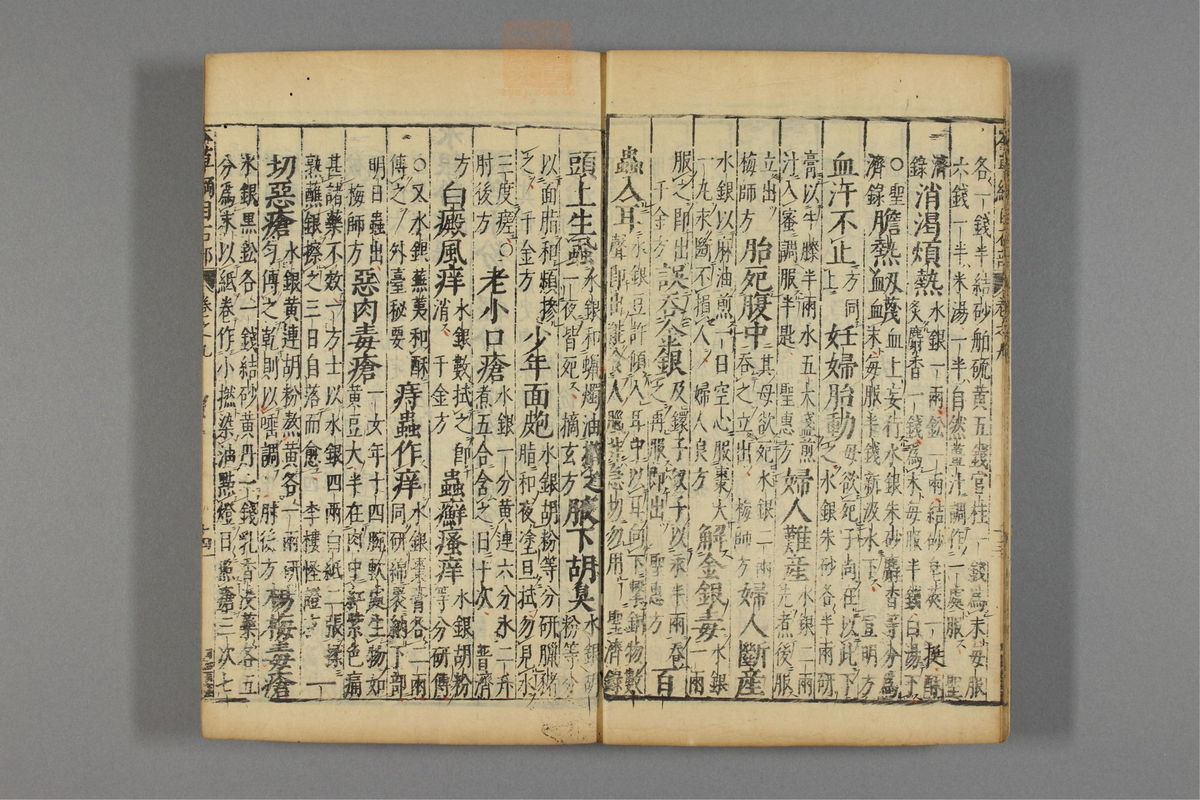 各一錢半結砂舶硫黃五錢官桂一錢爲末每服
六錢一半米湯一半自然薑汁調作一處服聖
濟錄消渴煩熱水銀一兩鉛一兩結砂皂莢一挺酥
炙麝香一錢爲末每服半錢白湯下
○聖膽熱衄衊血上妄行水銀朱砂麝香等分爲
濟錄末每服半錢新汲水下宣明方
血汗不止方同上妊婦胎動母欲死子尚在以此下
之水銀朱砂各半兩研
膏以牛膝半兩水五大盞煎
汁入蜜調服半匙聖惠方婦人難產水銀二兩
先煮後服
立出梅師方胎死腹中其母欲死水銀二兩
吞之立出梅師方婦人斷產
水銀以麻油煎一日空心服棗大
一丸永斷不損人婦人良方解金銀毒水銀一兩
服之即出千金方誤吞金銀及鐶子釵子以汞半兩吞
之再服即出聖惠方百
蟲入耳水銀豆許傾入耳中以耳向下擊銅物數
聲即出能食人腦非急切勿用聖濟錄
頭上生蝨水銀和蠟燭油揩之
一夜皆死摘玄方腋下胡臭水銀胡粉等分
以面脂和頻摻之千金方少年面皰水銀胡粉等分研臘豬
脂和夜塗旦拭勿見水
三度瘥○肘後方老小口瘡水銀一分黃連六分水二升
煮五合含之日十次普濟
方白癜風痒水銀數拭之即
消千金方蟲癬瘙痒水銀胡粉
等分研傅
○又水銀蕪荑和酥
傅之外臺秘要痔蟲作痒水銀棗膏各二兩
同研綿裹納下部
明日蟲出梅師方惡肉毒瘡一女年十四腕軟處生物如
黃豆大半在肉中紅紫色痛
甚諸藥不效一方士以水銀四兩白紙二張揉
熟蘸銀擦之三日自落而愈李樓怪證方一
切惡瘡水銀黃連胡粉熬黃各一兩研
勻傅之乾則以唾調肘後方楊梅毒瘡
水銀黑鉛各一錢結砂黃丹一錢乳香沒藥各五
分爲末以紙卷作小撚染油點燈日照瘡三次七